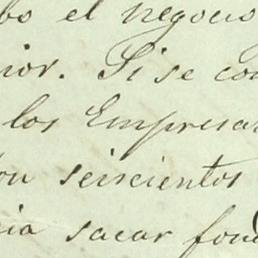 bo el negocio
ior. Si se con
los Empresar
on seiscientos
ia sacar fond